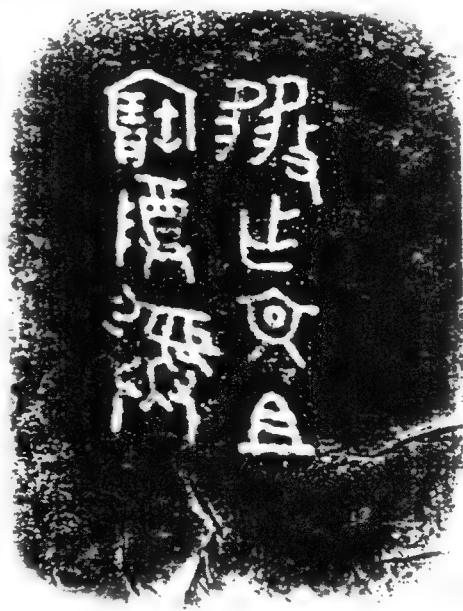 乍文且
寶𢍜彝